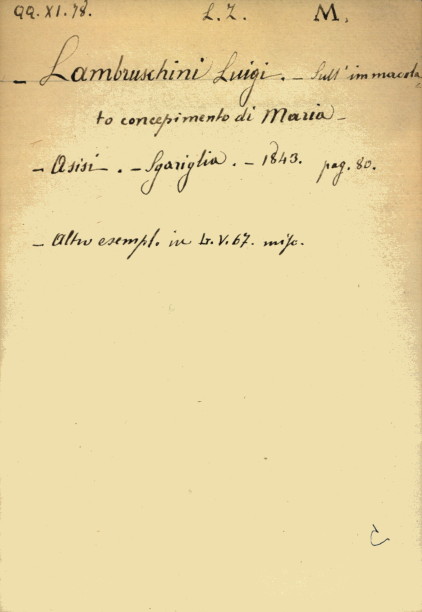 QQ.XI.78. L.Z. M.
– Lambruschini Luigi. – Sull'immacola
to concepimento di Maria –
– Asisi. – Sgariglia. – 1843. pag. 80.
– Altro esempl. in G.V.67. misc.